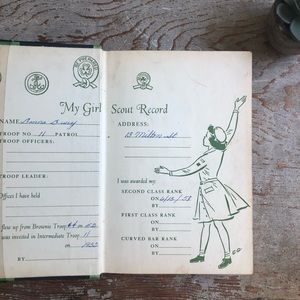 My Girl Scout Record
NAME
ADDRESS:
TROOP NO. 11 PATROL
13 Milton St
TROOP OFFICERS:
TROOP LEADER:
I was awarded my
Offices I have held
SECOND CLASS RANK
ON 6/15/53
BY
flew up from Brownie Troop on
FIRST CLASS RANK
ON
BY
was invested in Intermediate Troop 11
on 1952
CURVED BAR RANK
BY
ON
BY